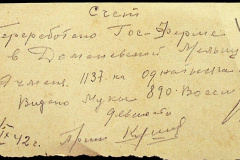 Счет
Переработано Гос-Ферме
в Доманевской Мельнице
Ячменя 1137 кг одна тысяча
Видано Муки 890. Восем
девяносто
IX 42 г. Прин